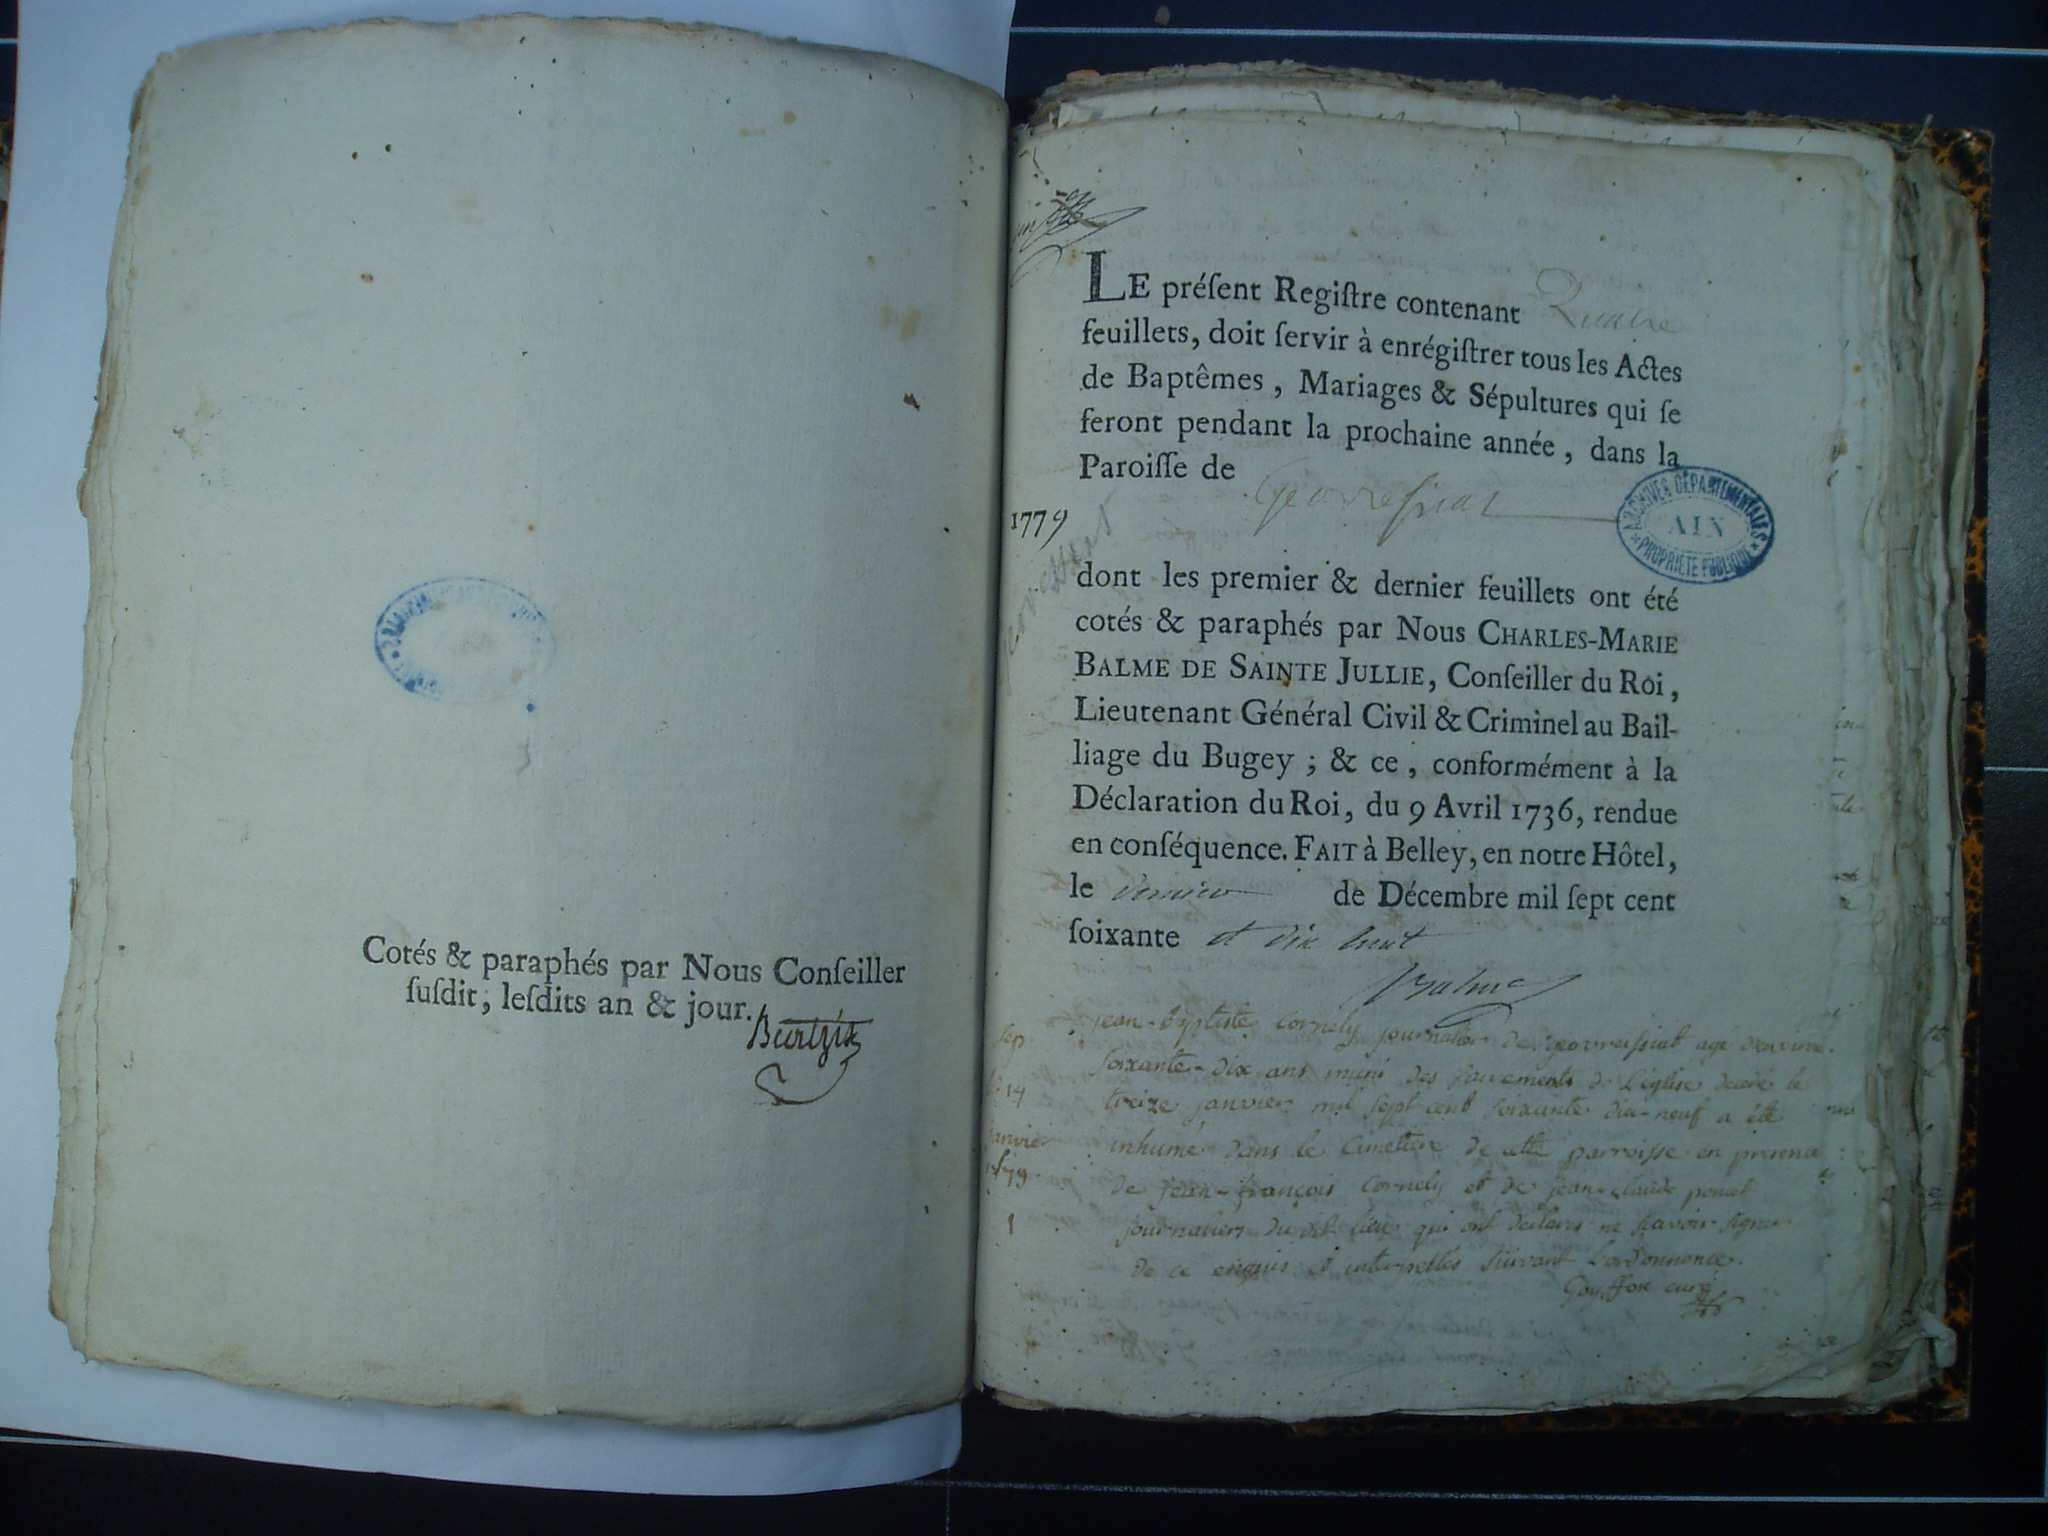 Cotés & paraphés par Nous Conſeiller
ſuſdit, leſdits an & jour.
LE préſent Regiſtre contenant Quatre
feuillets, doit ſervir à enrégiſtrer tous les Actes
de Baptêmes, Mariages & Sépultures qui ſe
feront pendant la prochaine année, dans la
Paroiſſe de Geovreſsiat
ARCHIVES DÉPARTEMENTALES
AIN
PROPRIÉTÉ PUBLIQUE
1779
dont les premier & dernier feuillets ont été
cotés & paraphés par Nous CHARLES-MARIE
BALME DE SAINTE JULLIE, Conſeiller du Roi,
Lieutenant Général Civil & Criminel au Bail-
liage du Bugey ; & ce, conformément à la
Déclaration du Roi, du 9 Avril 1736, rendue
en conſéquence. FAIT à Belley, en notre Hôtel,
le dernier de Décembre mil ſept cent
ſoixante et dix huit
Balme
sep
14
janvier
1779
1
jean-Baptiste Cornely journalier de Geovreissiat agé d'environ
soixante-dix ans muni des sacrements de l'église décédé le
treize janvier mil sept cent soixante dix-neuf a été
inhumé dans le cimetiere de cette parroisse en presence
de jean-françois Cornely et de jean-claude
journaliers dudit lieu qui ont déclaré ne sçavoir signer
de ce enquis et interpellés suivant l'ordonnance.
Goyffon curé